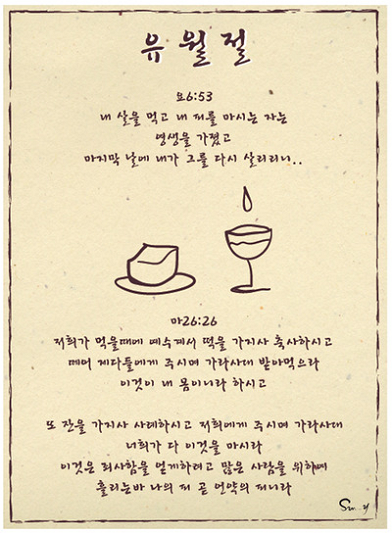 유 월 절
요6:53
내 살을 먹고 내 피를 마시는 자는
영생을 가졌고
마지막 날에 내가 그를 다시 살리리니..
마26:26
저희가 먹을때에 예수께서 떡을 가지사 축사하시고
떼어 제다들에게 주시며 가라사대 받아먹으라
이것이 내 몸이니라 하시고
또 잔을 가지사 사례하시고 저희에게 주시며 가라사대
너희가 다 이것을 마시라
이것은 죄사함을 얻게하려고 많은 사람을 위하여
흘리는바 나의 피 곧 언약의 피니라